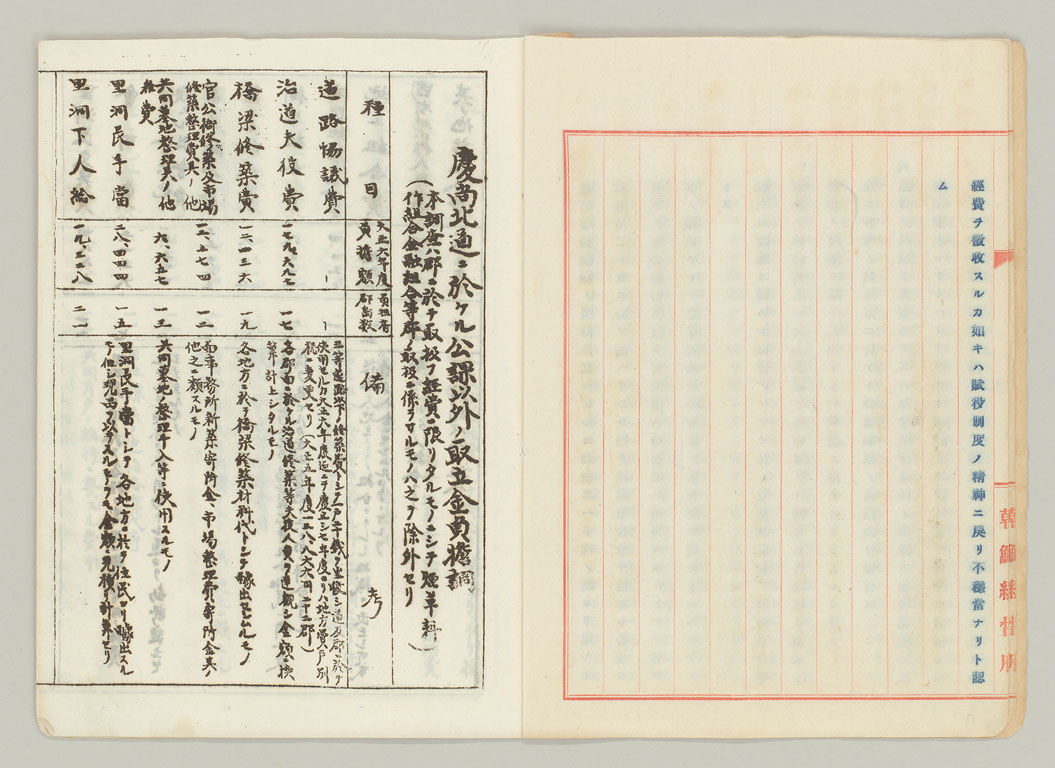 經費ヲ徵收スルカ如キハ賦役制度ノ精神ニ戾リ不穩當ナリト認
ム
朝鮮總督府
慶尚北道ニ於ケル公課以外ノ取立金負擔調
(本調査ハ郡ニ於テ取扱フ經費ニ限リタルモノニシテ煙草耕
作組合金融組合等郡ノ取扱ニ係ラサルモノハ之ヲ除外セリ)
種目
大正六年度
負擔額
負担者
郡島数
備考
道路協議費
三等道路以下ノ修築費トシテ一戸二十銭ヲ
治道夫役費
一七九、六九七
一七
各郡面ニ於ケル治道修築等夫役人員ヲ達観シ金額ニ換
算計上シタルモノ
橋梁修築費
一二、一三六
一九
各地方ニ於テ橋梁修築材料代トシテ醵出セシムルモノ
官公衙修築及市場
修築整理費其ノ他
一二、七七四
一二
面事務所新築寄附金、市場整理費寄附金其ノ
他之ニ類スルモノ
共同墓地整理其ノ他
雑費
六、六五七
一三
共同墓地ノ整理手入等ニ使用スルモノ
里洞民手當
二八、四四四
一五
里洞民手當トシテ各地方ニ於テ住民ヨリ醵出スル
モ但シ現品ヲ以テスルモノアルモ金額ニ見積リ計算セリ
里洞下人給
一九、二二八
二一